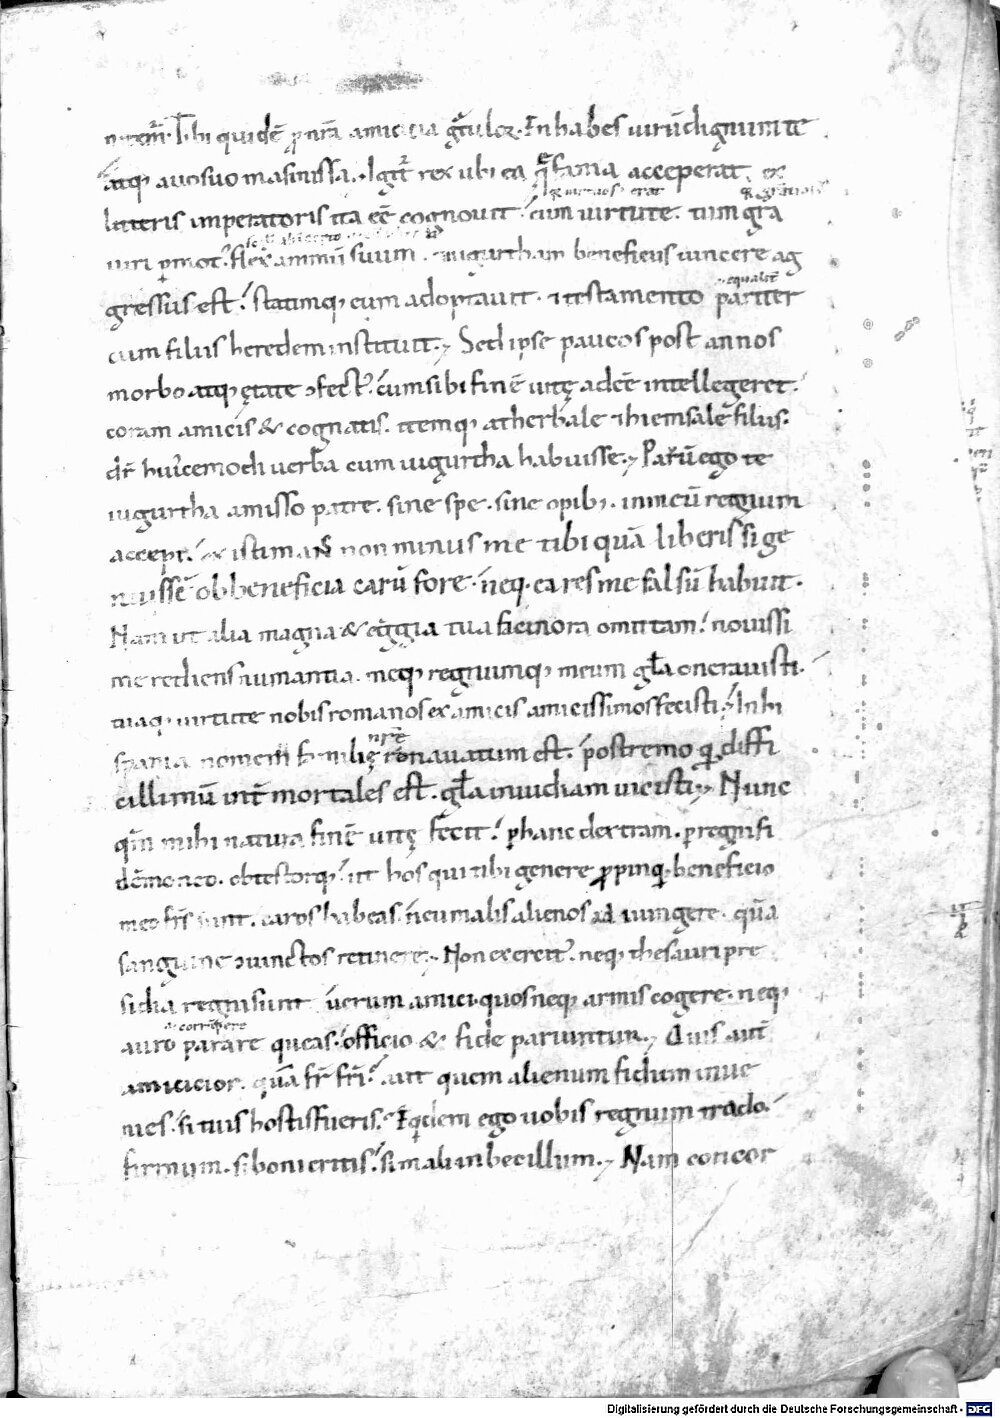 26
nitem̄. Tibi quidē ꝓ nr̄a amicicia gr̄tulor. En habes uirū dignum te
atq; auo suo masinissa. Igit̄ rex ubi ea q̄ fama acceperat. ex
litteris imperatoris ita eē cognouit. cum uirtute. tum gr̄a
uiri ꝑmot'. flexit animū suum. iugurtham beneficiis uincere ag
equalit̄
gressus est. statimq; eum adoptauit. & testamento pariter
cum filiis heredem instituit. Sed ipse paucos post annos
morbo atq; ętate ɔfect'. cum sibi finē uitę adeē intellegeret.
coram amicis & cognatis. itemq; atherbale & hiemsale filiis.
dr̄ hui'cemodi uerba cum iugurtha habuisse. Paruū ego te
iugurtha amisso patre. sine spe. sine opib;. in meū regnum
accepi. existimans non minus me tibi quā liberis si ge
nuissē ob beneficia carū fore. neq; ea res me falsū habuit.
Nam ut alia magna & egḡia tua facinora omittam. nouissi
me rediens numantia. meq; regnumq; meum gl̄a onerauisti.
tuaq; uirtute nobis romanos ex amicis amicissimos fecisti. In hi
nr̄ę
spania nomen familię renouatum est. postremo qđ diffi
cillimū int̄ mortales est. gl̄a inuidiam uicisti. Nunc
qm̄ mihi natura finē uitę fecit. ꝑ hanc dextram. ꝑ regni fi
dē moneo. obtestorq; ut hos qui tibi genere ꝓpinq; beneficio
meo fr̄s sunt. caros habeas. neu malis alienos adiungere. quā
sanguine ɔiunctos retinere. Non exercit'. neq; thesauri pre
sidia regni sunt uerum amici. quos neq; armis cogere. neq;
auro parare queas. officio & fide pariuntur. Quis aut̄
amicicior. quā fr̄ fr̄i. aut quem alienum fidum inue
nies. si tuis hostis fueris. Eqidem ego uobis regnum trado.
firmum. si boni eritis. si mali inbecillum. Nam concor
Digitalisierung gefördert durch die Deutsche Forschungsgemeinschaft - DFG